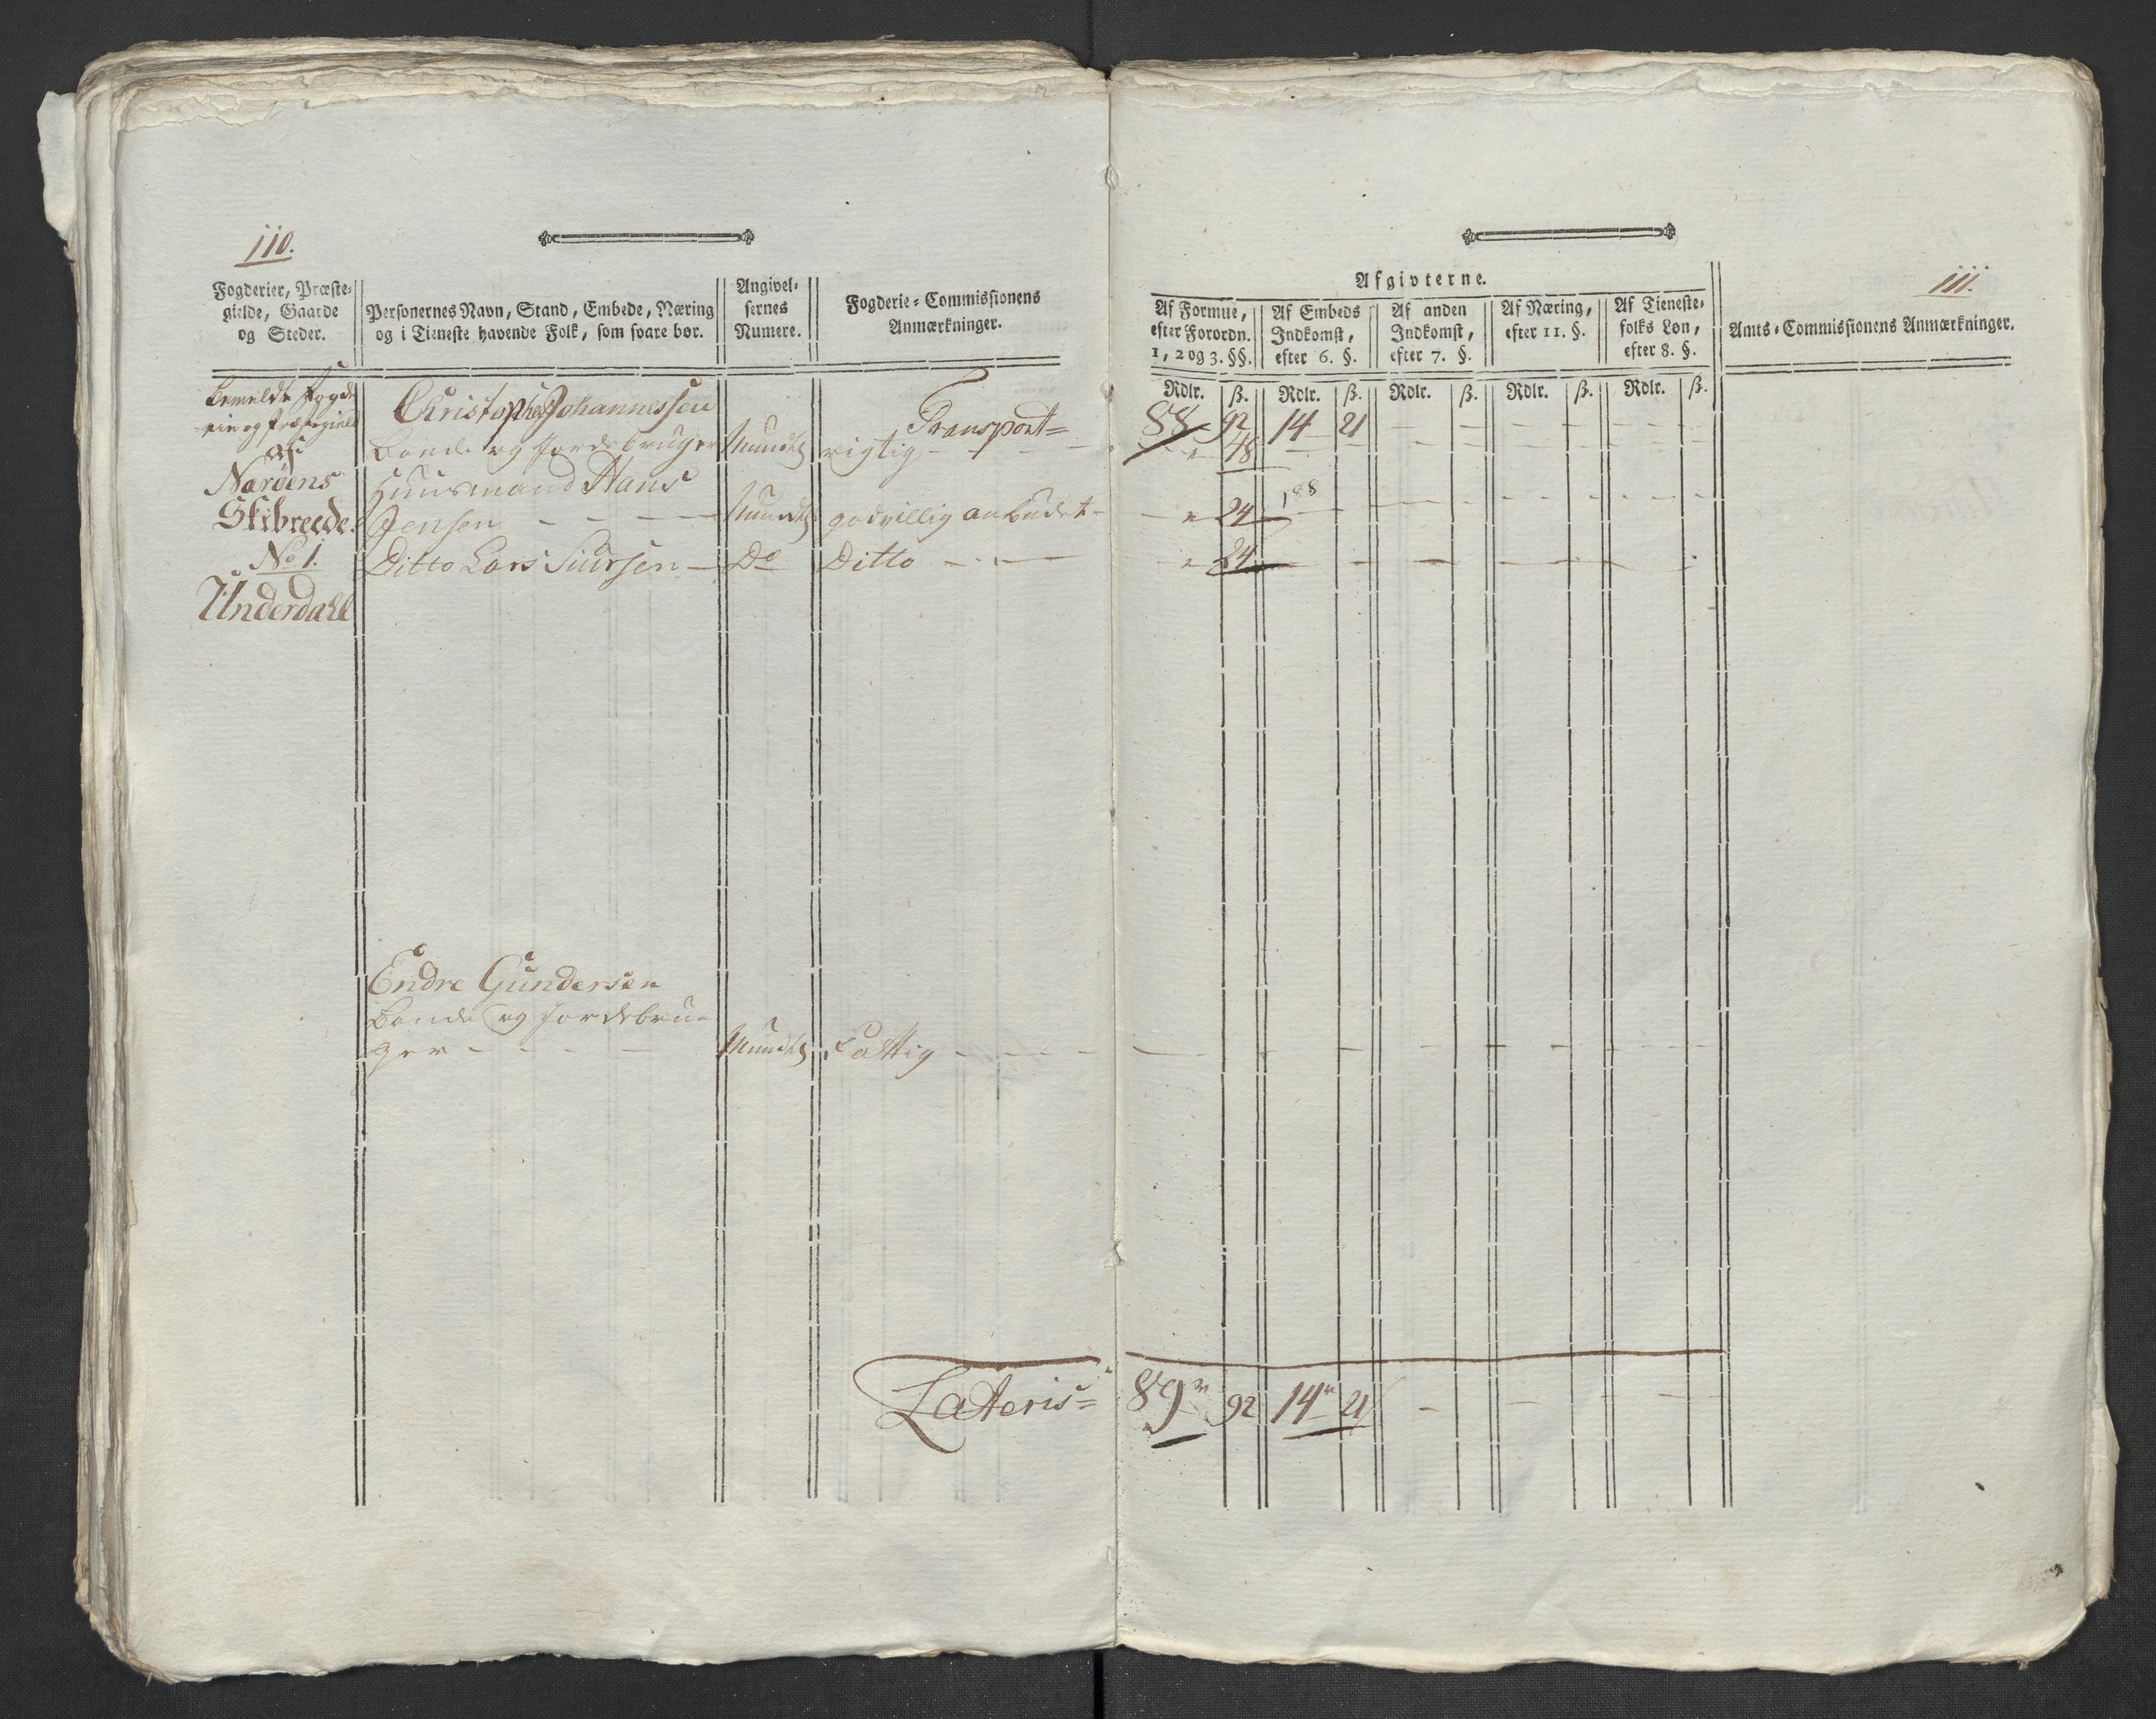 110.
Fogderier, Præste-
gielde, Gaarde
og Steder.
Personernes Navn, Stand, Embede, Næring
og i Tieneste havende Folk, som svare bør.
Angivel-
sernes
Numere.
Fogderie-Commissionens
Anmærkninger.
bemeldte Fogde
rie og Præstegield
Nærøens
Skibreede.
No 1.
Underdahl
Christopher Johannessen
Transport=
bonde og Jordebruger Mundtl rigtig - - -
Huusmand Hans
Jensen - - - - Mundtl godvillig anbudet -
Ditto Lars Siursen - Do Ditto - . -
Endre Gundersen
Bonde og Jordebru-
ger - - - - Mundtl Fattig - - - -
Lateris=
111.
Afgivterne.
Af Formue,
efter Forordn.
1, 2 og 3. §§.
Af Embeds
Indkomst,
efter 6. §.
Af anden
Indkomst,
efter 7. §.
Af Næring,
efter 11. §.
Af Tieneste-
folks Løn,
efter 8. §.
Amts-Commissionens Anmærkninger.
Rdlr. ß. Rdlr. ß. Rdlr. ß. Rdlr. ß. Rdlr. ß.
88 92 14 21 - - - - - -
48 - - - - - - - -
188
24 - - - - - - - -
24 - - - - - - - -
- - - - - - - - - -
89 92 14 21 - - -